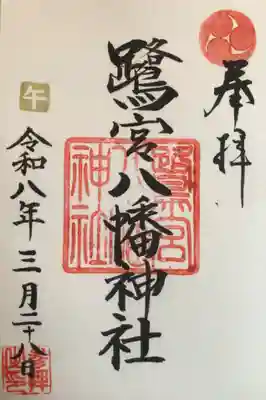 奉拝
鷺宮八幡神社
鷺宮八幡神社
午
令和八年三月二十八日